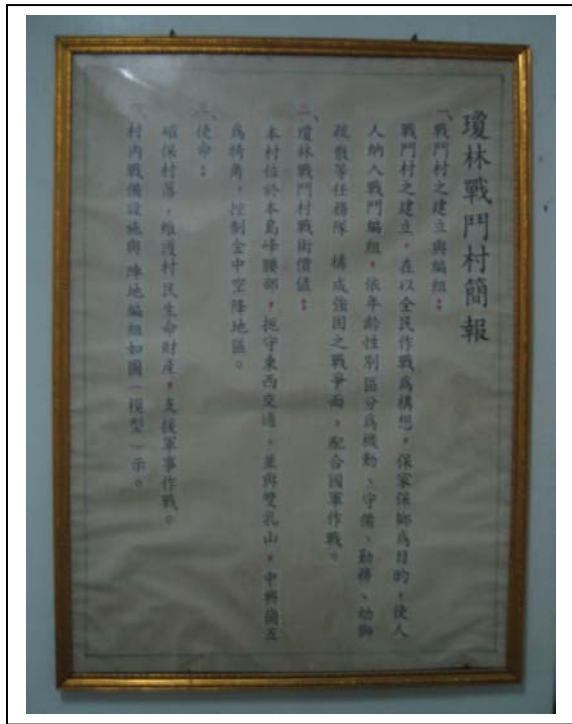 瓊林戰鬥村簡報
一、戰鬥村之建立與編組：
戰鬥村之建立，在以全民作戰爲構想，保家保鄉爲目的，使人
人納入戰鬥編組，依年齡性別區分爲機動、守備、勤務、幼獅
疏散等任務隊，構成強固之戰爭面，配合國軍作戰。
二、瓊林戰鬥村戰術價值：
本村位於本島峰腰部，扼守東西交通，並與雙乳山，中興崗互
爲犄角，控制金中空降地區。
三、使命：
確保村落，維護村民生命財產，支援軍事作戰。
村內戰備設施與陣地編組如圖（模型）示。